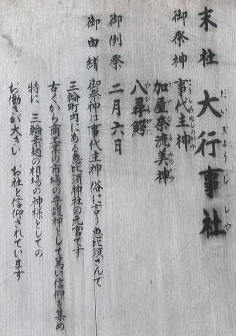 末社 大行事社
だいぎょうじしゃ
御祭神 事代主神
加屋奈流美神
八尋鰐
御例祭 二月六日
御由緒 御祭神は事代主神 俗に言う恵比須さんで
三輪町内にある恵比須神社の元宮です
古くから商工業の市場の守護神として篤い信仰を集め
特に 三輪素麺の相場の神様としての
お働きが大きい お社と信仰されています